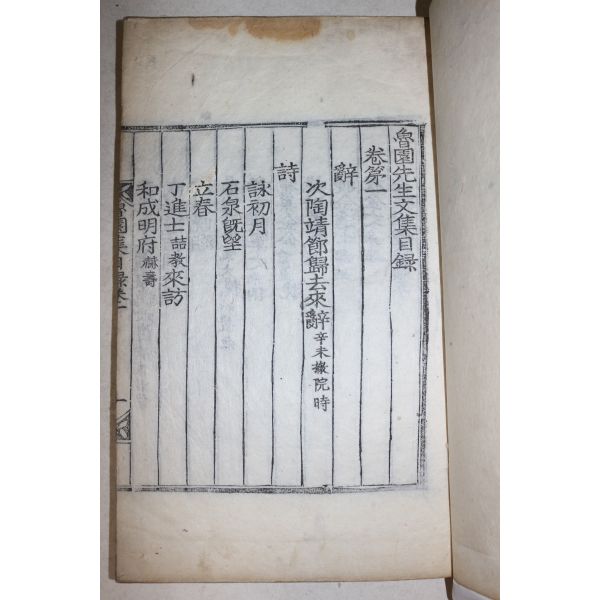 魯園先生文集目錄
卷第一
辭
次陶靖節歸去來辭 辛未撤院時
詩
詠初月
石泉旣望
立春
丁進士 喆教 來訪
和成明府 麻壽
魯園集目錄卷一
一